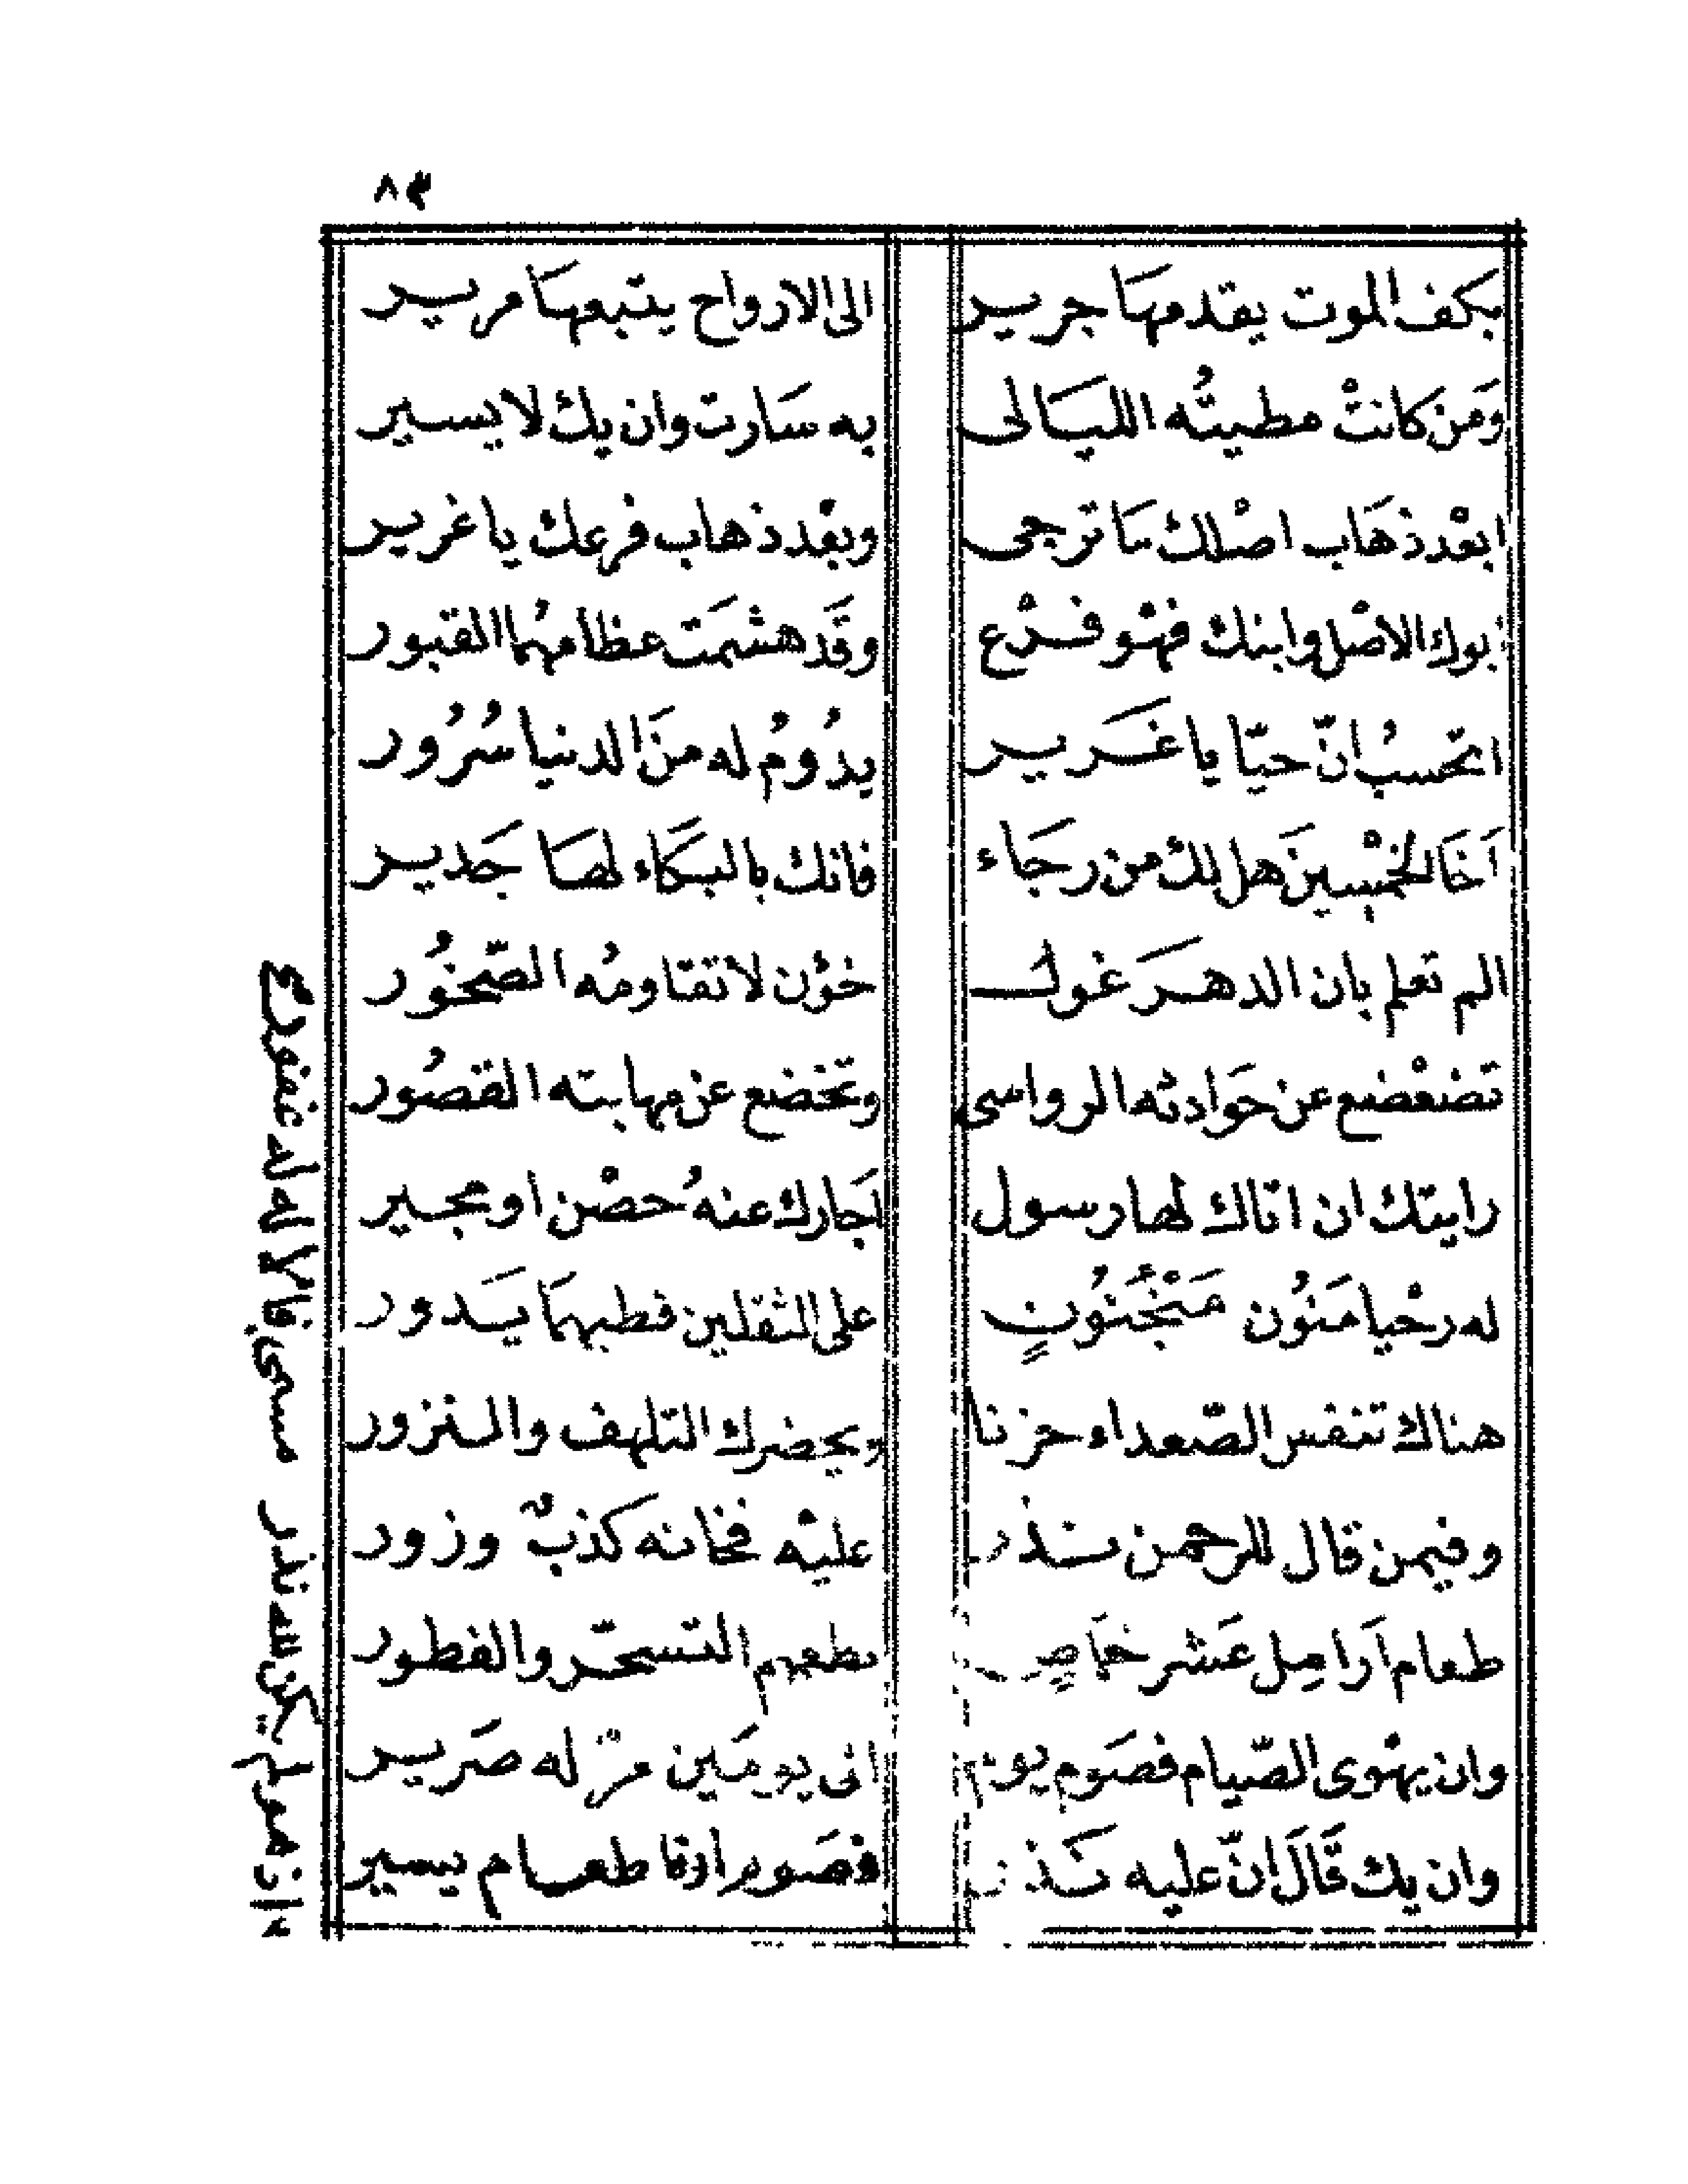 ٨٣
بكف الموت يقدمها جرير الى الارواح يتبعها مرير
وَمَن كانتْ مطيتُه الليَالى به سَارت وان يك لا يسير
ابعْد ذهَاب اصْلك مَا ترجى وبعْد ذهاب فرعك يا غرير
ابوك الاصْل وابنك فهْو فرْع وقَد هشمَت عظامهُما القبور
اتحسبُ انّ حيّا يا غَرير يدُومُ له منَ الدنيا سُرُور
اَخَا الخمْسينَ هل لك من رجَاء فانك بالبكَاء لها جَدير
الم تعلم بان الدهرَ غول خؤن لا تقاومُه الصّخُور
تضعْضع عن حوَادثه الرواسى وتخضع عن مهابته القصُور
رايتك ان اتاك لها رسول اجَارك عنهُ حصْن او مجير
له رحْيا مَنُون مَنْجَنُونٍ على الثقلين قطبهمَا يَدور
هناك تنفس الصّعداء حزنا ويحضرك التلهف والنزور
وفيمن قال للرحمن نذر عليْه فخانه كذبٌ وزور
طعام اَرامِل عَشر خمَاصٍ التسحّر والفطور
وان يهْوى الصّيام فصَوم يوم اتى يومَين له صَرير
وان يك قَالَ انّ عليه نَذر فصَوم اوفا طعام يسير
وان هو لم يكن لله نذر فان الاله له غفور